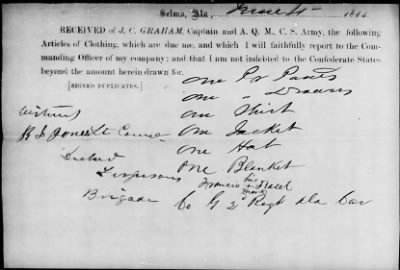 Selma, Ala,
RECEIVED of J. C. GRAHAM, Captain and A. Q. M. C. S. Army, the following
Articles of Clothing, which are due me, and which I will faithfully report to the Com-
manding Officer of my company; and that I am not indebted to the Confederate States
beyond the amount herein drawn for.
[SIGNED DUPLICATES.]
One Pr Pants
One " Drawers
One Shirt
One Jacket
One Hat
One Blanket
Lt
Brigade
Francis
his
mark
Co G 2d Regt Ala Cav